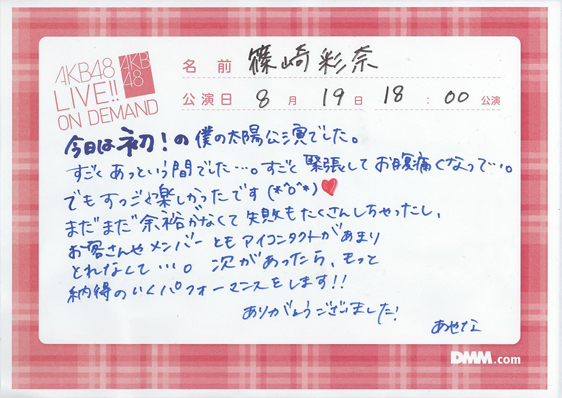 AKB48
LIVE!!
ON DEMAND
AKB
48
名前 篠崎彩奈
公演日 8月19日 18:00公演
今日は初！の僕の太陽公演でした。
すごくあっという間でした…。すごく緊張してお腹痛くなって…。
でもすっごく楽しかったです(*´o`*)♥
まだまだ余裕がなくて失敗もたくさんしちゃったし、
お客さんやメンバーともアイコンタクトがあまり
とれなくて…。次があったら、もっと
納得のいくパフォーマンスをします!!
ありがとうございました!
あやな
DMM.com